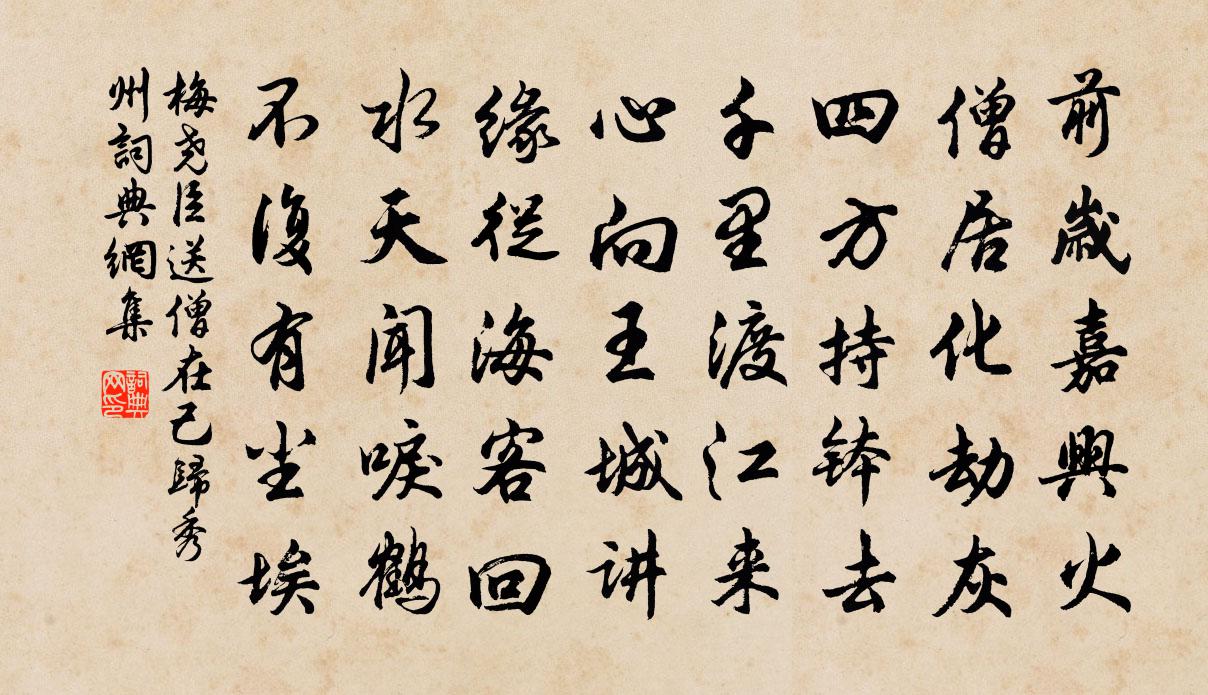 前歲嘉興火
僧居化劫灰
四方持钵去
千里渡江来
心向王城讲
缘從海客回
水天闻唳鹤
不復有尘埃
梅尧臣送僧在己歸秀
州詞典網集
詞典
网印